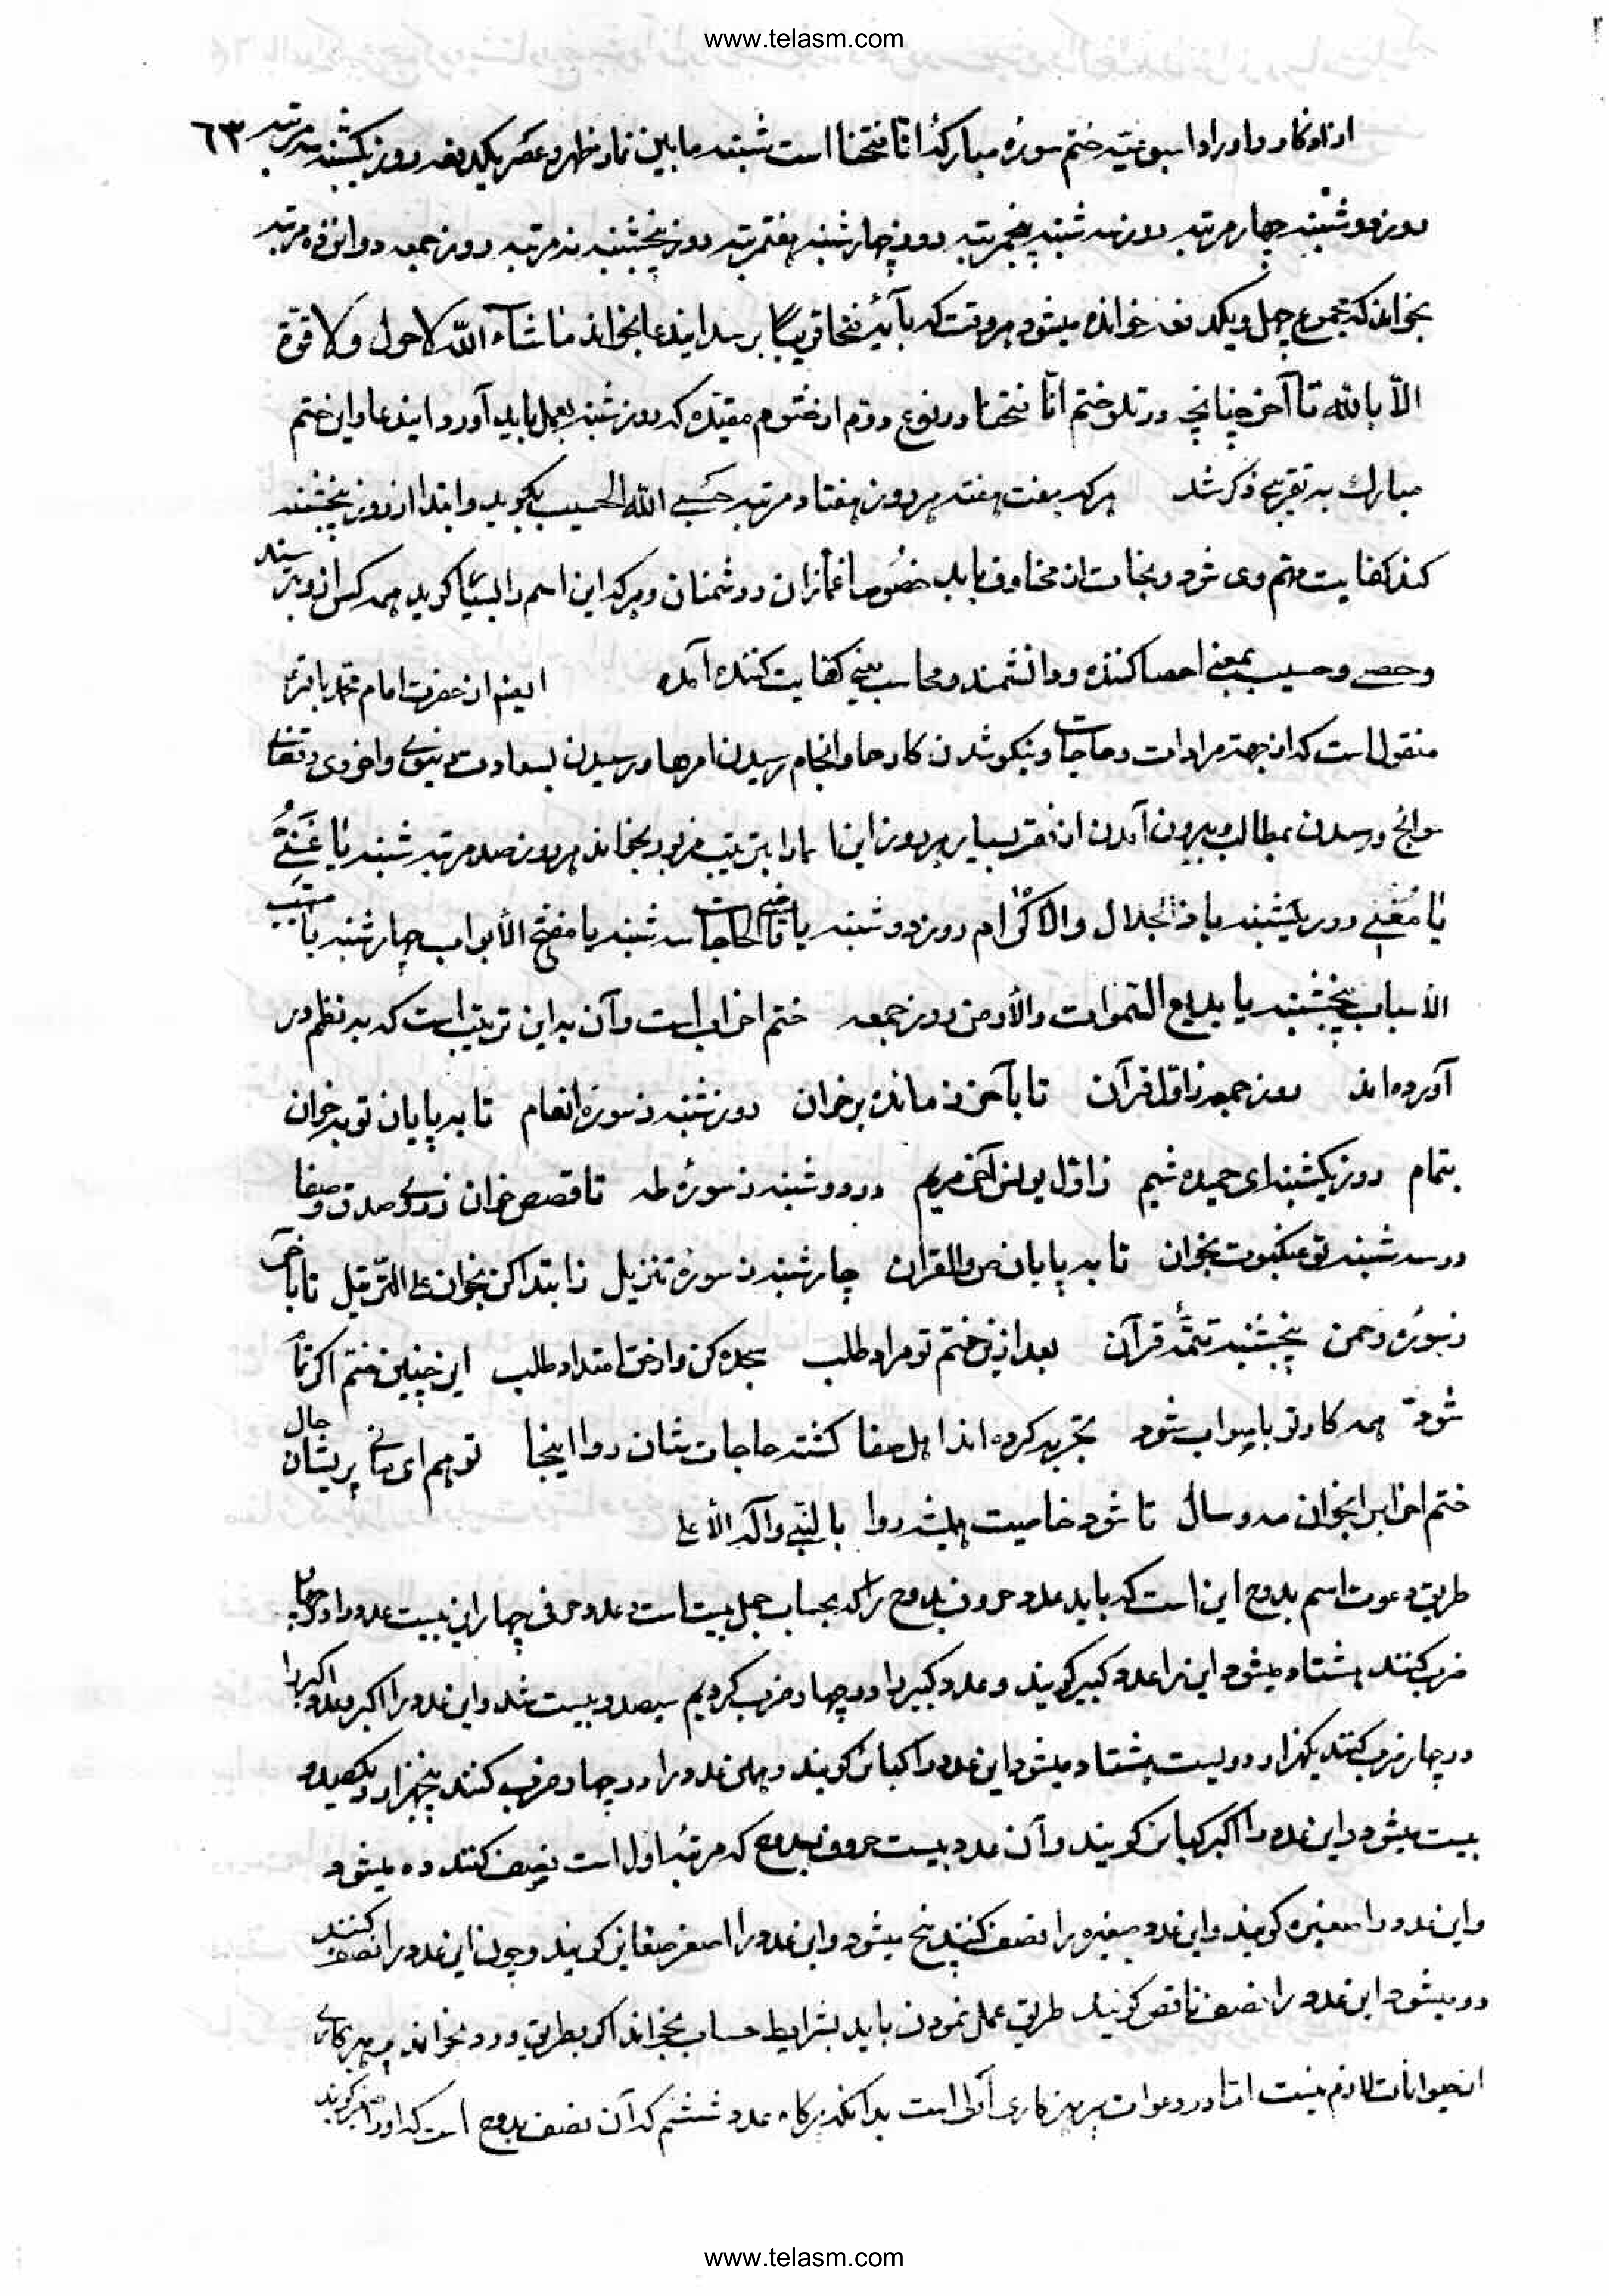 www.telasm.com
از اذکار و اوراد اسبوعیه ختم سوره مبارکهٔ انا فتحنا است شنبه مابین نماز ظهر و عصر یکدفعه روز یکشنبه سه مرتبه ٦٣
روز دوشنبه چهار مرتبه روز سه شنبه پنجمرتبه روز چهارشنبه هفتمرتبه روز پنجشنبه نه مرتبه روز جمعه دوازده مرتبه
بخواند که مجموع چهل و یکدفعه خوانده میشود هر وقت که بآیهٔ فتحا قریبا برسد ایندعا بخواند ماشآء اللّه لاحول ولا قوّة
الّا باللّه تا آخر چنانچه در تلو ختم انّا فتحنا در نوع دوّم از ختوم مقیّده که روز شنبه بعمل باید آورد ایندعا و این ختم
مبارك به تقریبی ذکر شد هر که هفت هفته هر روز هفتاد مرتبه حَسبی اللّه الحسیب بگوید و ابتدا از روز پنجشنبه
کند کفایت مهم وی شود و نجات از مخاوف یابد خصُوصا غمازان و دشمنان و هر که این اسم را بسیار گوید همه کس از وی ترسند
و حصی و حسیب بمعنی احصا کننده و دانشمند و محاسب یعنی کفایت کننده آمده ایضا از حضرت امام محمّد باقر
منقول است که از جهة مرادات و حاجات و نیکو شدن کارها و انجام رسیدن امرها و رسیدن بسعادت دنیوی و اخروی و قضای
حوائج و رسیدن بمطالب و بیرون آمدن از فقر بسیار هر روز این نامها را بترتیب مزبور بخواند هر روز صد مرتبه شنبه یا غَنیُّ
یا مُغنی روز یکشنبه یا ذالجلال والاکرام روز دوشنبه یا قاضی الحاجات سه شنبه یا مفتح الأبواب چهارشنبه یا مسبّب
الأسباب پنجشنبه یا بدیع السّموات والأرض روز جمعه ختم احزاب است و آن به این ترتیب است که به نظم در
آورده اند روز جمعه ز اوّل قرآن تا بآخر ز مائده برخوان روز شنبه ز سورهٔ انعام تا به پایان توبه خوان
بتمام روز یکشنبه ای حمیده شیم ز اوّل یونس آخر مریم در دوشنبه ز سورهٔ طه تا قصص خوان ز روی صدق و صفا
در سه شنبه تو عنکبوت بخوان تا به پایان ص والقرآن چارشنبه ز سورهٔ تنزیل ز ابتدا کن بخوان علی التّرتیل تا بآخر
ز سورهٔ رحمن پنجشنبه تتمّه قرآن بعد ازین ختم تو مراد طلب سجده کن وز خدا امداد طلب این چنین ختم اگر تمام
شود همه کار تو با صواب شود تجربه کرده اند اهل صفا گشته حاجات شان روا اینجا تو هم ای پریشان حال
ختم احزاب را بخوان مه و سال تا شود خاصیت همیشه روا بالنّبی وآله الأعلی
طریق دعوت اسم بدوح این است که باید عدد حروف بدوح را که بحساب جمل بیست است و عدد حرفی چهار این بیست عدد را در چهار
ضرب کنند هشتاد میشود این را عدد کبیر گویند و عدد کبیر را در چهار ضرب کردیم سیصد و بیست شد و این عدد را اکبر و عدد اکبر را
در چهار ضرب کنند یکهزار و دویست هشتاد میشود این عدد را کبائر گویند و همین عدد را در چهار ضرب کنند پنجهزار و یکصد و
بیست میشود و این عدد را اکبر کبائر گویند و آن عدد بیست حروف بدوح که مرتبهٔ اول است نصف کنند ده میشود
و این عدد را صغیره گویند و این عدد صغیره را نصف کنند پنج میشود و این عدد را اصغر صغائر گویند و چون این عدد را نصف کنند
دو میشود این عدد را نصف ناقص گویند طریق عمل نمودن باید بشرایط حساب بخواند اگر بطریق ورد بخواند پرهیزکاری
از حیوانات لازم نیست امّا در دعوات پرهیزکاری اولی است بدانکه هرگاه عدد ششم که آن نصف بدوح است که او را صغیر گویند
www.telasm.com